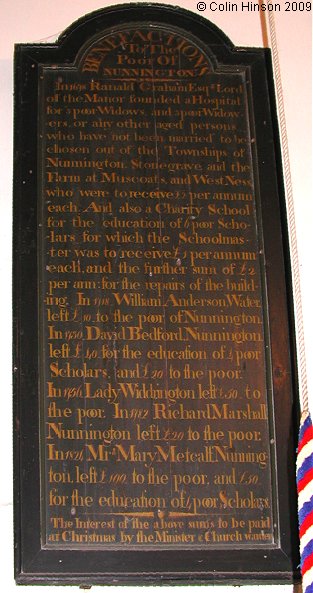 © Colin Hinson 2009
BENEFACTIONS
To The
Poor Of
NUNNINGTON
In 1678 Ranald Graham Esqr. Lord
of the Manor founded a Hospital
for 3 poor Widows, and 3 poor Widow-
ers, or any other aged persons
who have not been married to be
chosen out of the Townships of
Nunnington, Stonegrave and the
Farm at Muscoats, and West Ness
who were to receive per annum
each. And also a Charity School
for the education of poor Scho-
lars for which the Schoolmas-
ter was to receive £1 per annum
each, and the further sum of £2
per ann: for the repairs of the build-
ing. In William Anderson Wafer,
left to the poor of Nunnington.
In David Bedford, Nunnington,
left £40 for the education of poor
Scholars, and £20 to the poor.
In Lady Widdrington left £50 to
the poor. In Richard Marshall
Nunnington left £20 to the poor.
In 1821 Mrs. Mary Metcalf Nunning-
ton, left £100 to the poor, and £50
for the education of 4 poor Scholars.
The Interest of the above sums to be paid
at Christmas by the Minister & Church warden